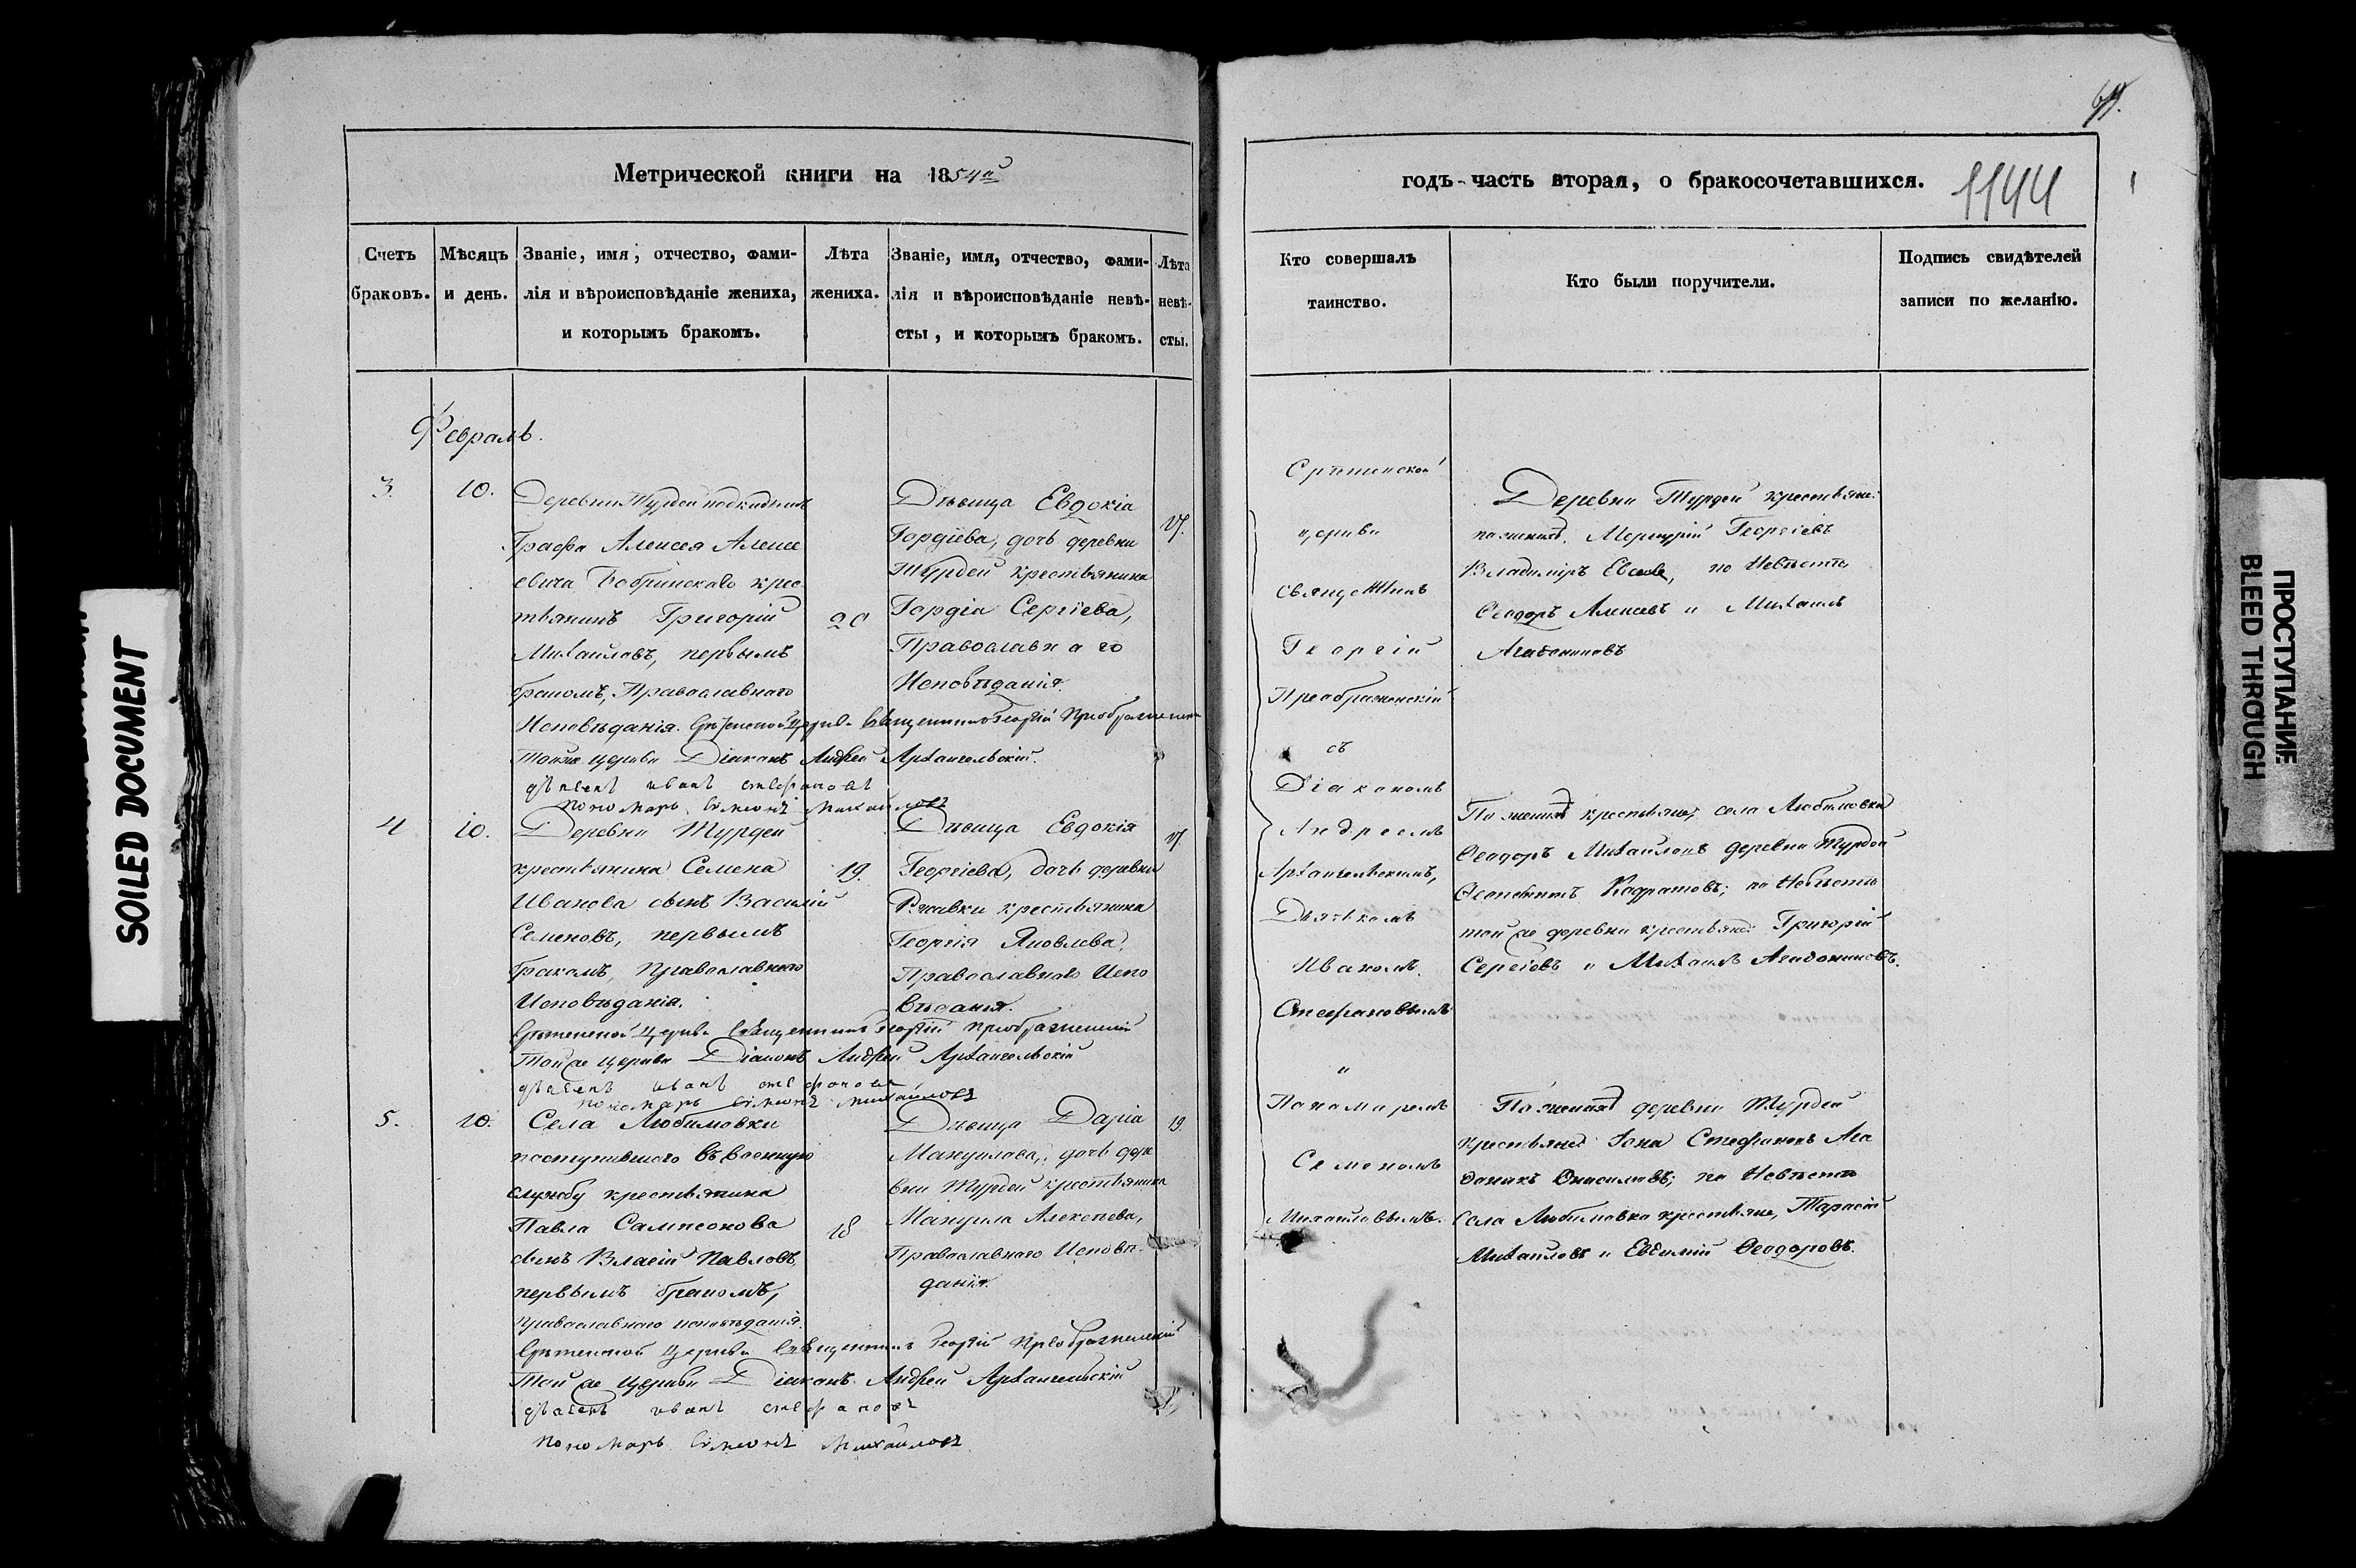 SOILED DOCUMENT
Метрической книги на 1854й
Счетъ браковъ.
Мѣсяцъ и день.
Званіе, имя, отчество, фами-
лія и вѣроисповѣданіе жениха,
и которымъ бракомъ.
Лѣта
жениха.
Званіе, имя, отчество, фами-
лія и вѣроисповѣданіе невѣ-
сты, и которымъ бракомъ.
Лѣта
невѣ-
сты.
Февраль.
3. 10.
Деревни Турдей подкидышъ
Графа Алексея Алексе
евича Бобринскаво крес
тьянинъ Григорій
Михаиловъ, первымъ
бракомъ, Православнаго
Исповѣданія.
20
Дѣвица Евдокіа
Гордіева, дочь деревни
Турдей крестьянина
Гордіа Сергіева,
Православнаго
Исповѣданія.
Срѣтенской церкви Священникъ Георгій Преображенскій
Тойже церкви Діаконъ Андрей Архангельскій.
дьячекъ иванъ стефановъ
пономарь симеонъ михайловъ
4 10.
Деревни Турдей
крестьянина Семена
Иванова сынъ Василій
Семеновъ, первымъ
бракомъ, Православнаго
Исповѣданія.
19.
Дѣвица Евдокія
Георгіева, дочь деревни
Ржавки крестьянина
Георгія Яковлева,
Православнаго Испо
вѣданія.
Срѣтенской Церкви Священникъ Георгій Преображенскій
Той же церкви Діаконъ Андрей Архангельскій
дьячекъ иванъ стефановъ
пономарь симеонъ михайловъ
5. 10.
Села Любимовки
поступившаго въ военную
службу крестьянина
Павла Сампсонова
сынъ Власій Павловъ,
первымъ бракомъ,
православнаго исповѣданія.
18
Дѣвица Даріа
Мануилова, дочь дере
вни Турдей крестьянина
Мануила Алексѣева,
Православнаго Исповѣ-
данія.
19.
Срѣтенской Церкви Священникъ Георгій Преображенскій
Той же Церкви Діаконъ Андрей Архангельскій
дьячекъ иванъ стефановъ
пономарь симеонъ михайловъ
годъ часть вторая, о бракосочетавшихся.
1144
Кто совершалъ
таинство.
Кто были поручители.
Подпись свидѣтелей
записи по желанію.
Срѣтенской
церкви
Священникъ
Георгій
Преображенскій
съ
Діакономъ
Андреемъ
Архангельскимъ,
Дьячкомъ
Иваномъ
Стефановымъ
и
Пономаремъ
Семеномъ
Михайловымъ.
Деревни Турдей крестьяне:
по женихѣ Меркурій Георгіевъ
Владиміръ Евсеев, по Невѣстѣ
Ѳеодоръ Алексеевъ и Михаилъ
Агаѳониковъ
По женихѣ крестьяне, села Любимовки
Ѳеодоръ Михаиловъ деревни Турдей
Кодратовъ; по Невѣстѣ
той же деревни крестьяне Григорій
Сергіевъ и Михаилъ Агаѳониковъ.
По женихѣ деревни Турдей
крестьяне Іона Стефановъ Ага
Онисимовъ; по Невѣстѣ
Села Любимовки крестьяне, Тарасій
Михаиловъ и Евѳимій Ѳеодоровъ.
ПРОСТУПАНИЕ
BLEED THROUGH